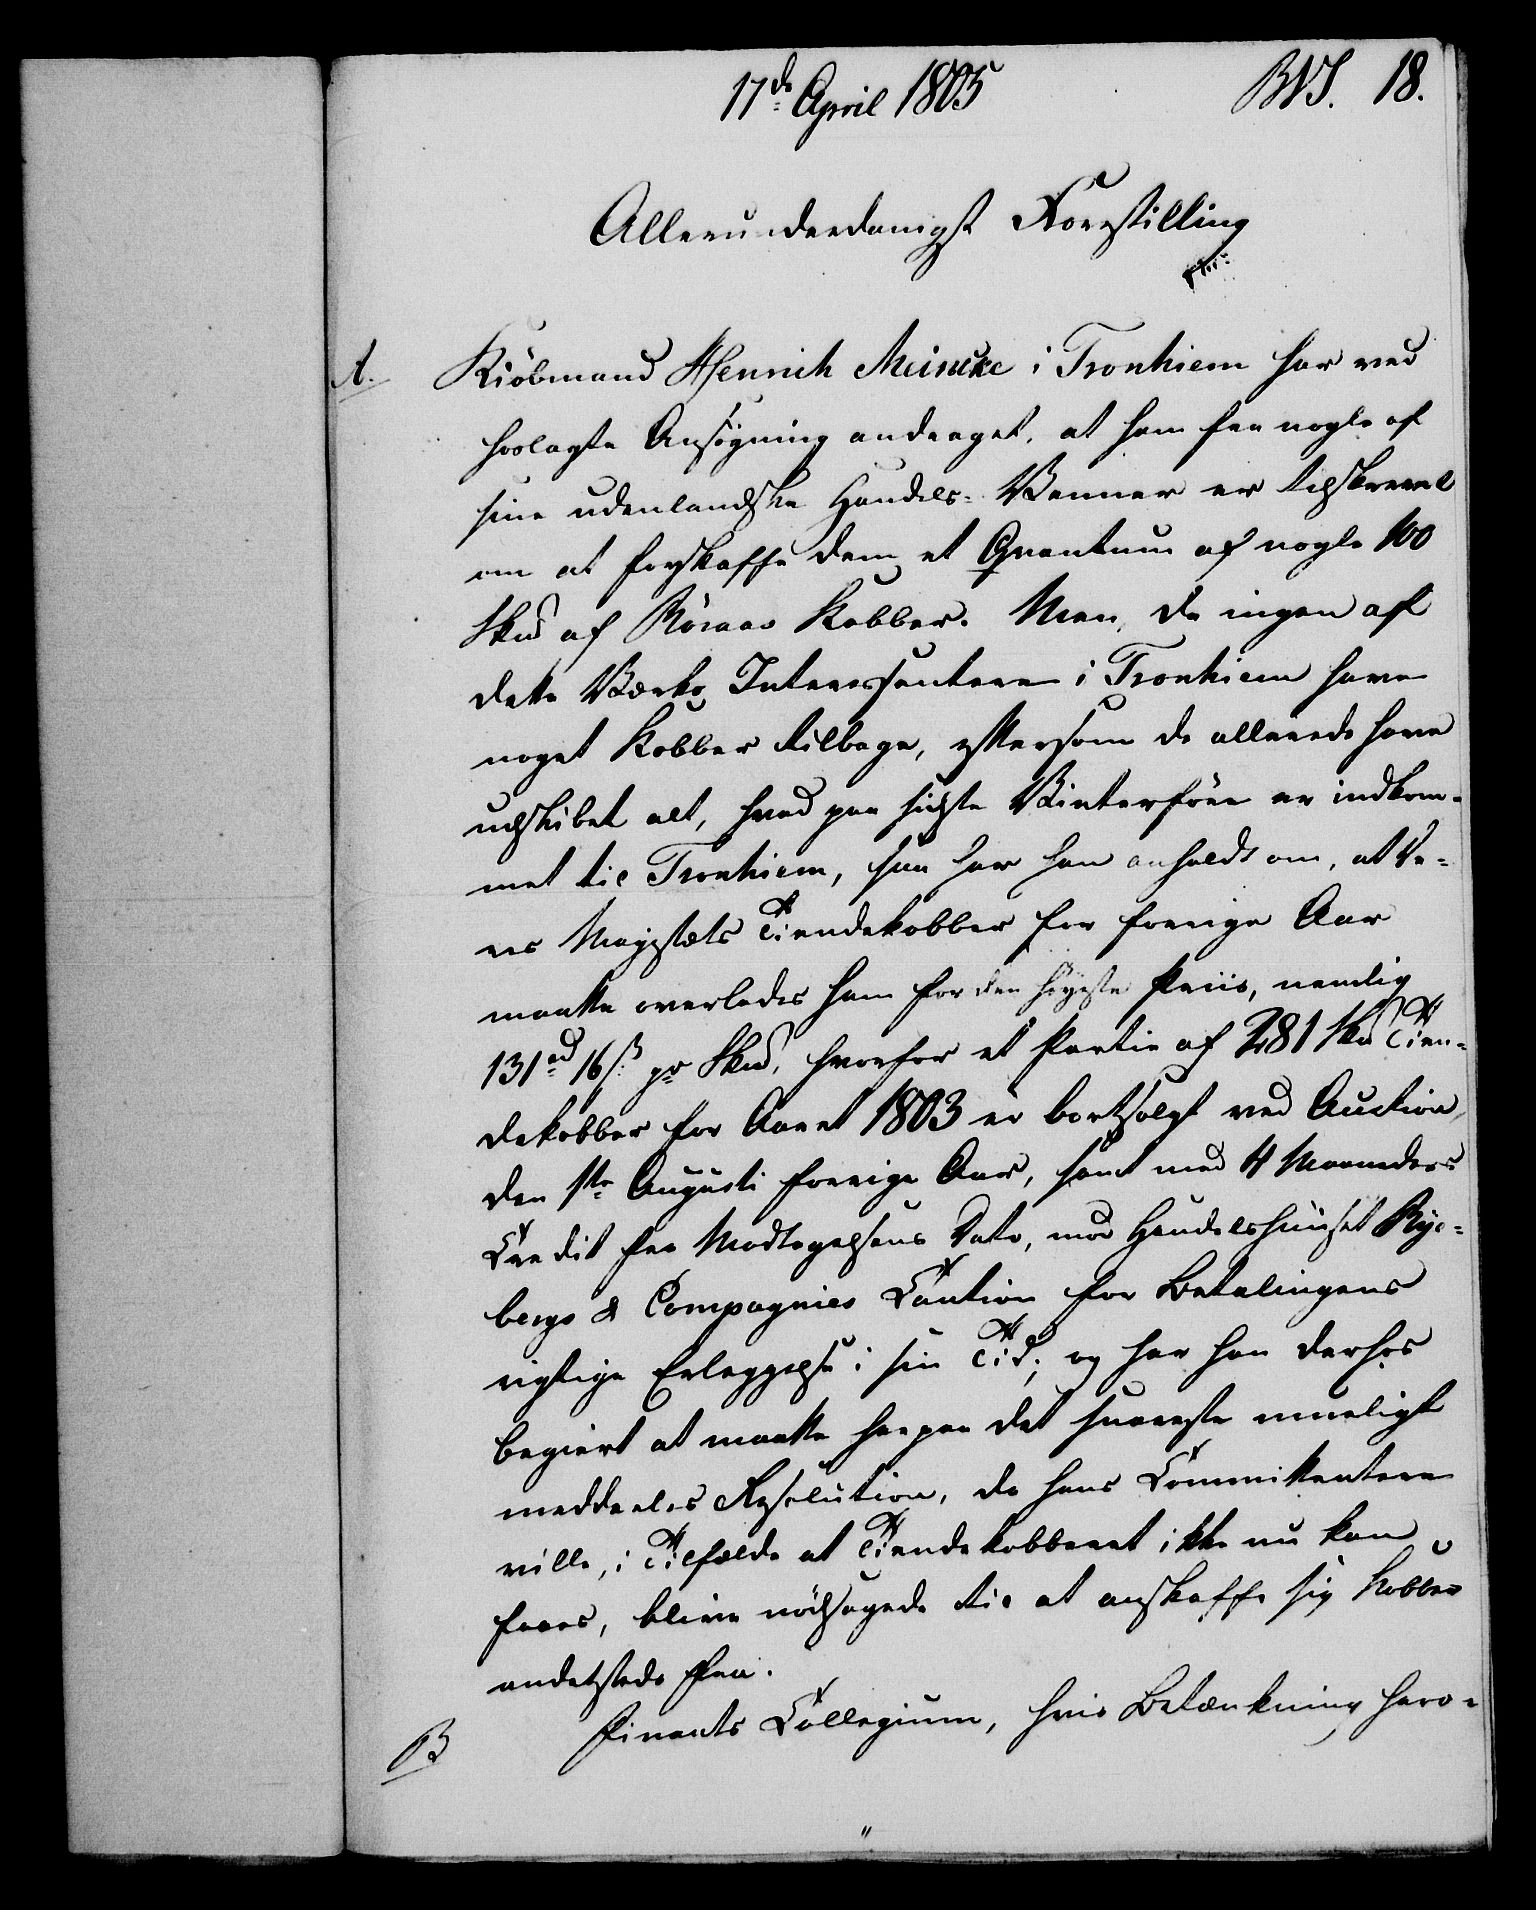 17de April 1805 BVS. 18.
Allerunderdanigst Forestilling
A. Kiöbmand Henrich Meincke i Tronhiem har ved
hoslagte Ansögning andraget, at ham fra nogle af
sine udenlandske Handels-Venner er tilskrevet
om at forskaffe dem et Qvantum af nogle 100
Skd af Röraas Kobber. Men, da ingen af
dette Værks Interessentere i Tronhiem have
noget Kobber tilbage, eftersom de allerede have
udskibet alt, hvad paa sidste Vinterföre er indkom-
met til Tronhiem, saa har han anholdt om, at De-
res Majestets Tiendekobber for forrige Aar
maatte overlades ham for den höyeste Priis, nemlig
131rd 16ß pr Skd, hvorfor et Partie af 281 Skd Tien-
dekobber for Aaret 1803 er bortsolgt ved Auction
den 1te Augusti forrige Aar, samt med 4 Maaneders
Credit fra Modtagelsens Dato, mod Handelshuuset Ryc-
bergs & Compagnies Caution for Betalingens
rigtige Erlæggelse i sin Tid; og har han derhos
begiert at maatte herpaa det snareste mueligt
meddeeles Resolution, da hans Committentere
ville, i Tilfælde at Tiendekobberet ikke nu kan
faaes, blive nödsagede til at anskaffe sig Kobber
andetsteds fra.
B Finants Collegium, hvis Betænkning hero-